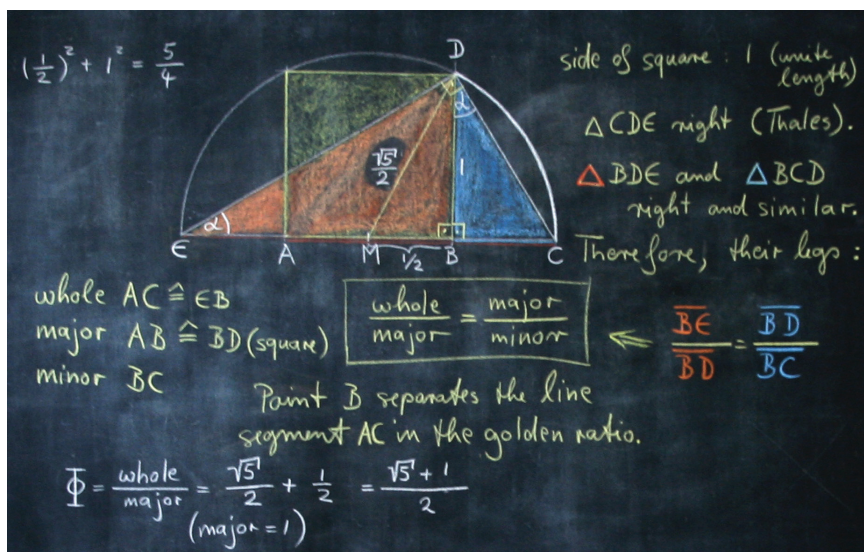 (1/2)² + 1² = 5/4
D
side of square : 1 (unite
length)
α
△ CDE right (Thales).
√5/2
1
△ BDE and △ BCD
right and similar.
α
E A M B C
1/2
Therefore, their legs :
whole AC ≙ EB
major AB ≙ BD (square)
minor BC
whole/major = major/minor
⇐ BE̅/BD̅ = BD̅/BC̅
Point B separates the line
segment AC in the golden ratio.
Φ = whole/major = √5/2 + 1/2 = (√5 + 1)/2
(major = 1)